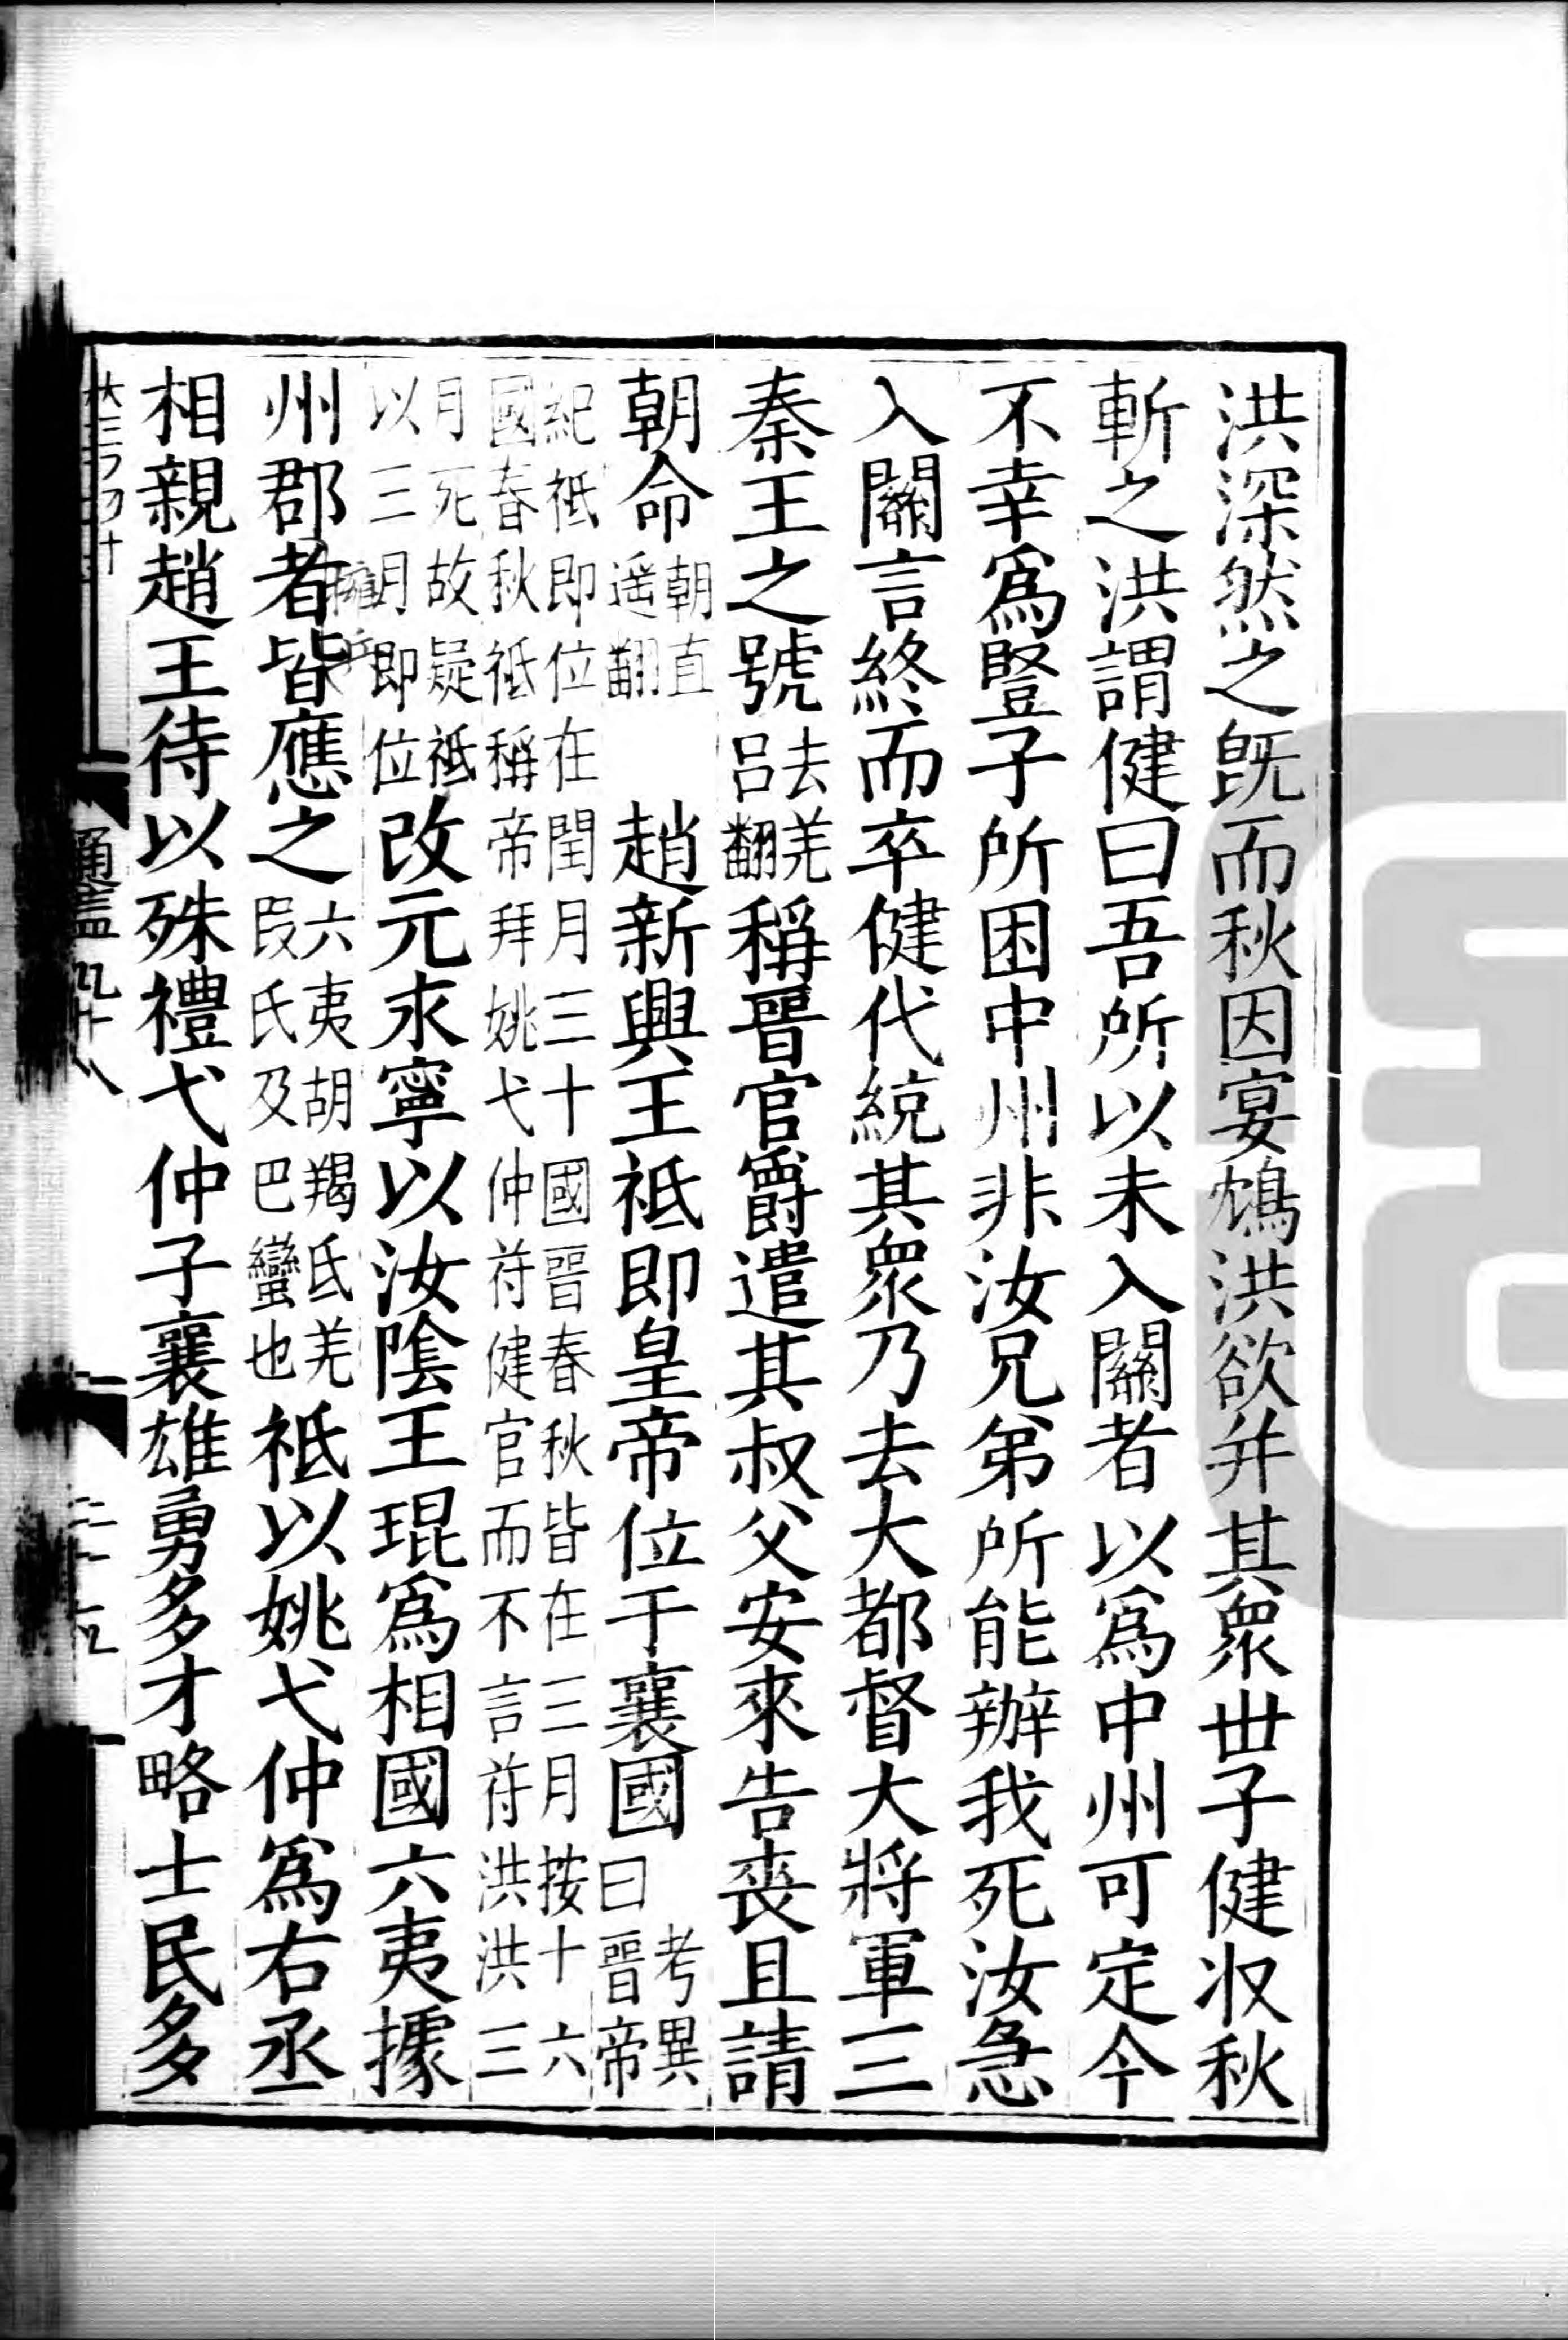 洪深然之既而秋因宴鴆洪欲幷其衆世子健收秋
斬之洪謂健曰吾所以未入關者以爲中州可定今
不幸爲豎子所困中州非汝兄弟所能辦我死汝急
入關言終而卒健代統其衆乃去大都督大將軍三
秦王之號去羌呂翻稱晉官爵遣其叔父安來告喪且請
朝命朝直遥翻 趙新興王祗即皇帝位于襄國考異曰晉帝
紀祗即位在閏月三十國晉春秋皆在三月按十六
國春秋祗稱帝拜姚弋仲苻健官而不言苻洪洪三
月死故疑祗以三月即位改元永寧以汝陰王琨爲相國六夷據
州郡者皆應之六夷胡羯氐羌叚氏及巴蠻也祗以姚弋仲爲右丞
相親趙王待以殊禮弋仲子襄雄勇多才略士民多
通鑑九十八